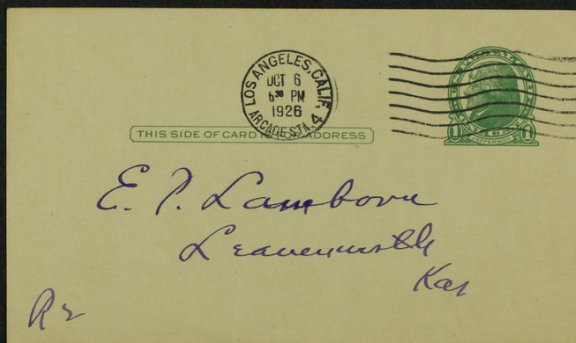 LOS ANGELES, CALIF.
OCT 6
6 30 PM
1926
ARCADE STA. 4
THIS SIDE OF CARD IS FOR ADDRESS
1 1
JEFFERSON
E. P. Lamborn
Leavenworth
Kas